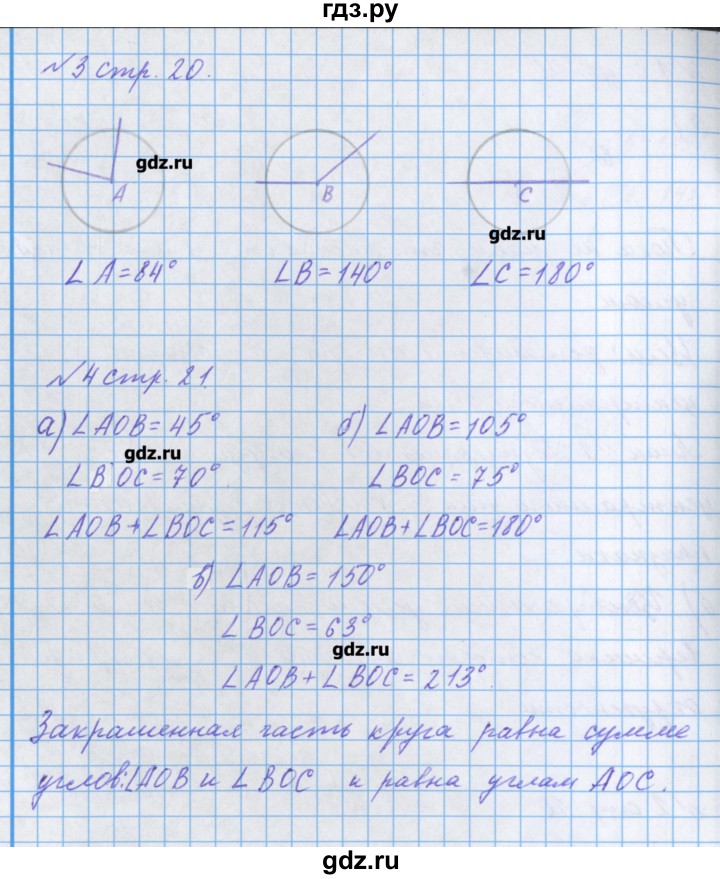 гдз.ру
№3 стр. 20.
A
gdz.ru
B
C
gdz.ru
∠A=84°
∠B=140°
∠C=180°
№4 стр. 21.
а) ∠AOB=45°
б) ∠AOB=105°
gdz.ru
∠BOC=70°
∠BOC=75°
∠AOB+∠BOC=115°
∠AOB+∠BOC=180°
в) ∠AOB=150°
∠BOC=63°
gdz.ru
∠AOB+∠BOC=213°.
Закрашенная часть круга равна сумме
углов:∠AOB и ∠BOC и равна углам AOC.
gdz.ru